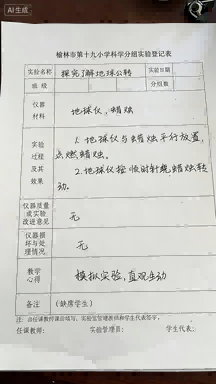 AI生成
榆林市第十九小学科学分组实验登记表
实验名称 探究了解地球公转 实验日期
班 级 分组数
仪器材料 地球仪,蜡烛
实验过程及其效果
1.地球仪与蜡烛平行放置,
点燃蜡烛。
2.地球仪按顺时针绕蜡烛转
动。
仪器质量或实验改进意见 无
仪器损坏与处理情况 无
教学心得 模拟实验,直观生动
备注 (缺席学生)
注:由任课教师课后填写,实验室管理教师和学生代表签字。
任课教师: 实验管理员: 学生代表: